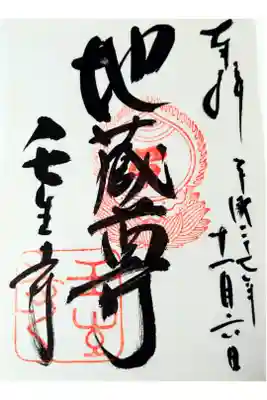 奉拝
平成二十七年
十一月六日
地蔵尊
壬生寺